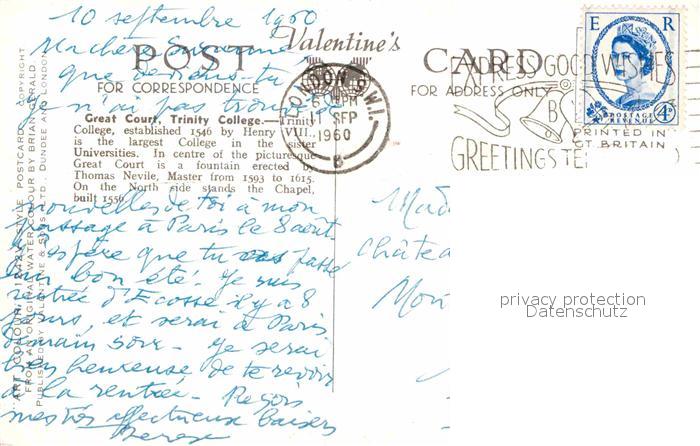 10 septembre 1960
Ma chère Suzanne
que deviens-tu
je n'ai pas trouvé de
POST Valentine's CARD
FOR CORRESPONDENCE
FOR ADDRESS ONLY
Great Court, Trinity College.—Trinity
College, established 1546 by Henry VIII.,
is the largest College in the sister
Universities. In centre of the picturesque
Great Court is a fountain erected by
Thomas Nevile, Master from 1593 to 1615.
On the North side stands the Chapel,
built 1556.
nouvelles de toi à mon
passage à Paris le 8 août
j'espère que tu as passé
un bon été. Je suis
rentrée d'Ecosse il y a 8
jours, et serai à Paris
demain soir. Je serai
bien heureuse de te revoir
à la rentrée. Reçois
mes très affectueux baisers
"ART COLOUR" "J. SALMON" STYLE POSTCARD. COPYRIGHT
FROM AN ORIGINAL WATER-COLOUR BY BRIAN GERALD.
PUBLISHED BY VALENTINE & SONS, LTD., DUNDEE AND LONDON
LONDON S.W.1.
6 PM
11 SEP
1960
B
ADDRESS GOOD WISHES
BY
GREETINGS TE
E R
POSTAGE
REVENUE
4D
PRINTED IN
GT BRITAIN
Mad
Châtea
Mon
privacy protection
Datenschutz